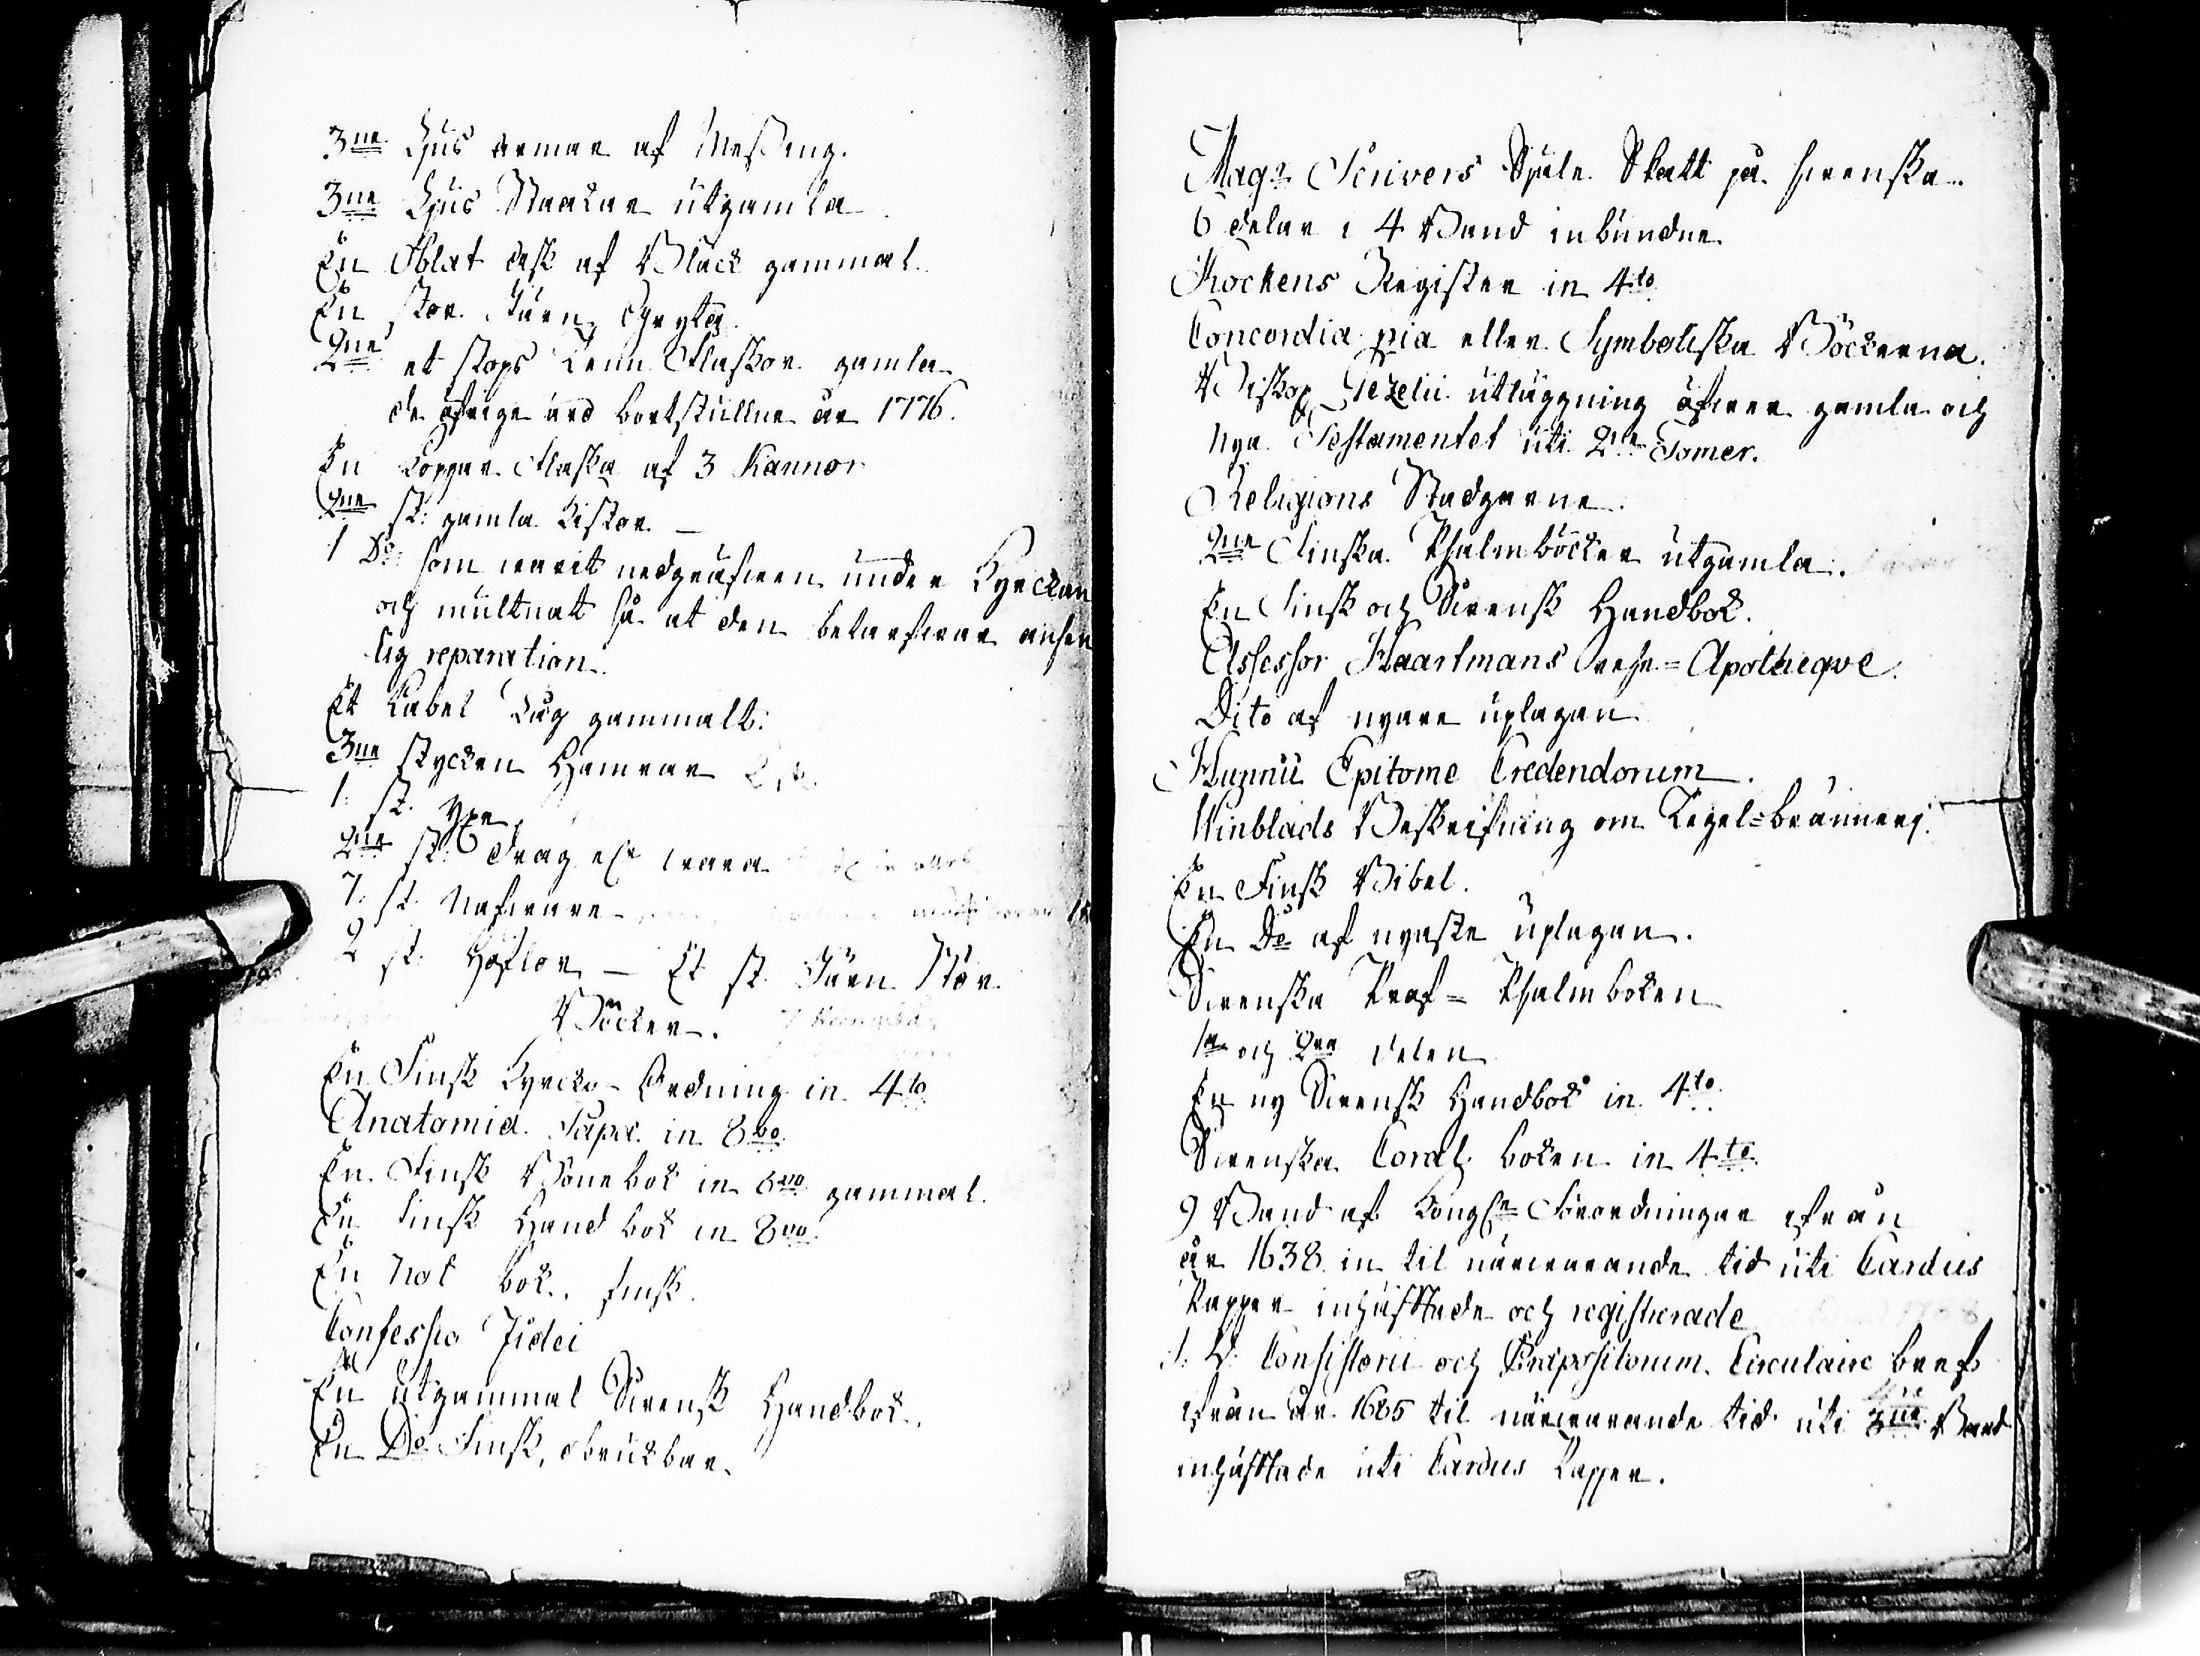 3ne Ljus armar af Messing.
3ne Ljus Staakar utgamla
En Oblat ask af Bläck gammal.
En stor Järn Gryta.
2ne et stops Tenn Flaskor gamla
de öfrige äro bortstullne år 1776.
En Koppar Flaska af 3 Kannor
2ne st: gamla Kistor. —
1 Do: som warit nedgräfwen under Kyrckan
och multnat så at den betarfwar ansen
lig reparation.
Et Kabel Tug gammalt:
3ne stycken Hamrar 2 st.
1: st. yxe
2ne st: Drag
7: st. Nafware
2 st: Höflor — Et st. Järn Stör
Böcker.
En Finsk Kyrcko-Ordning in 4to
Anatomia Papæ in 8vo
En Finsk Bönebok in 8vo gammal.
En Finsk Hand bok in 8vo.
En Not bok. finsk.
Confessio Fidei
En utgammal Swensk Handbok.
En Do Finsk, obrukbar.
Mag:r Scrivers Själe Skatt på swenska
6 delar i 4 Band inbundne
Kockens Register in 4to
Concordia pia eller Symboliska Böckerna.
Biskop Gezelii utläggning öfwer gamla och
Nya Testamentet uti 2ne Tomer.
Religions Stadgarne.
2ne Finska Psalmböcker utgamla.
En Finsk och Swensk Handbok.
Assessor Haartmans Apotheqve.
Dito af nyare uplagan
Epitome Credendorum.
Winblads Beskrifning om Tegel=bränneri.
En Finsk Bibel.
En Do af nyaste uplagan.
Swenska Prof= Psalmboken
1a och 2ra delen
En ny Swensk Handbok in 4to.
Swenska Coral boken in 4to
9 Band af Kongl:e Förordningar ifrån
år 1638 in til närwarande tid uti Cardus
Papper inhäfftade och registrerade
V: Consistorii och Præpositorum Circulaire bref
ifrån år 1685 til närwarande tid uti 3ne Band
inhäfftade uti Cardus Papper.